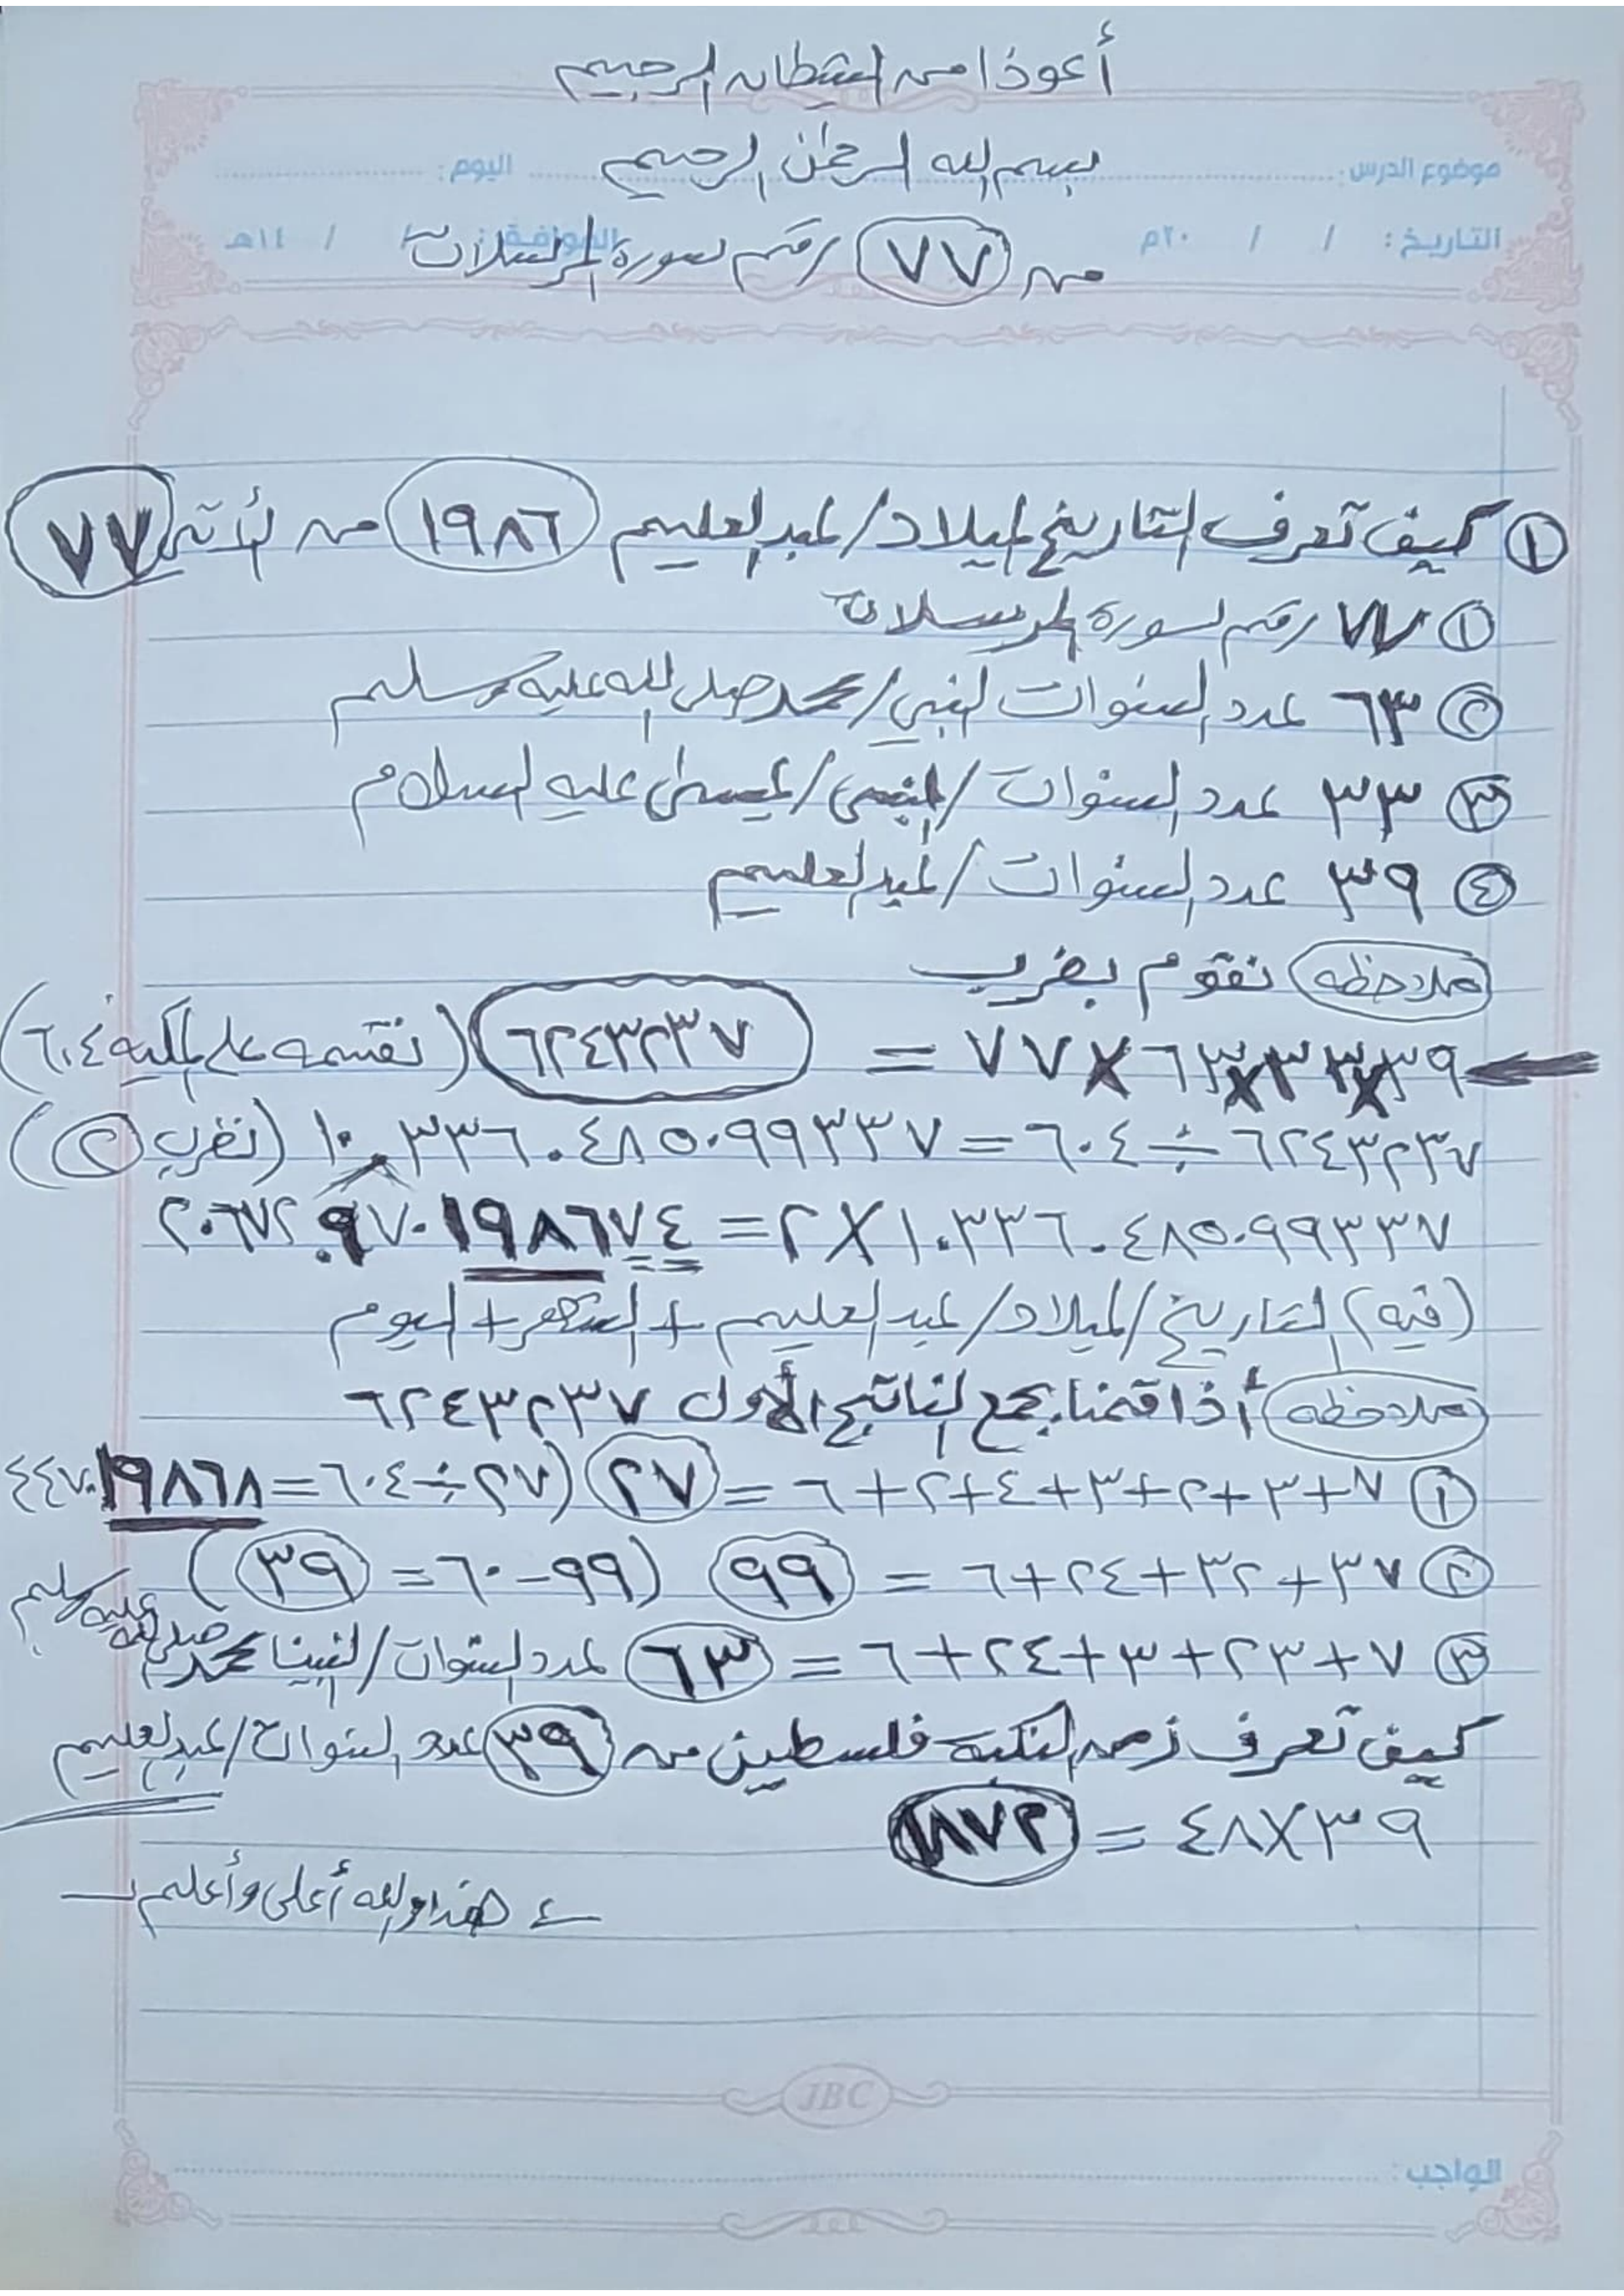 أعوذ من الشيطان الرجيم
بسم الله الرحمن الرحيم
موضوع الدرس: اليوم:
التاريخ: / / ٢٠م الموافق: / / ١٤هـ
من ٧٧ رقم سورة المرسلات
١ كيف تعرف التاريخ الميلاد/عبدالعليم ١٩٨٦ من ٧٧
١ ٧٧ رقم سورة المرسلات
٢ ٦٣ عدد السنوات النبي/محمد صلى الله عليه وسلم
٣ ٣٣ عدد السنوات/النبي/عيسى عليه السلام
٤ ٣٩ عدد السنوات/عبدالعليم
ملاحظه نقوم بضرب
٣٩×٣٣×٦٣×٧٧ = ٦٢٤٣٢٣٧ (نقسمه على ٦٠٤)
٦٢٤٣٢٣٧ ÷ ٦٠٤ = ١٠٣٣٦.٤٨٥٠٩٩٣٣٧ (نضرب ٢)
١٠٣٣٦.٤٨٥٠٩٩٣٣٧ × ٢ = ٢٠٦٧٢.٩٧٠١٩٨٦٧٤
(فيه) التاريخ/الميلاد/عبدالعليم + الشهر + اليوم
ملاحظه أذا قمنا بجمع الناتج الأول ٦٢٤٣٢٣٧
١ ٧+٣+٢+٣+٤+٢+٦ = ٢٧ (٢٧÷٦٠٤=٤٤٧.١٩٨٦٨
٢ ٣٧+٣٢+٢٤+٦ = ٩٩ (٩٩-٦٠=٣٩)
٣ ٧+٢٣+٣+٢٤+٦ = ٦٣ عدد السنوات/النبينا محمد صلى الله عليه وسلم
كيف تعرف زمن النكبة فلسطين من ٣٩ عدد السنوات/عبدالعليم
٣٩×٤٨ = ١٨٧٢
هذا والله أعلى وأعلم
JBC
الواجب: